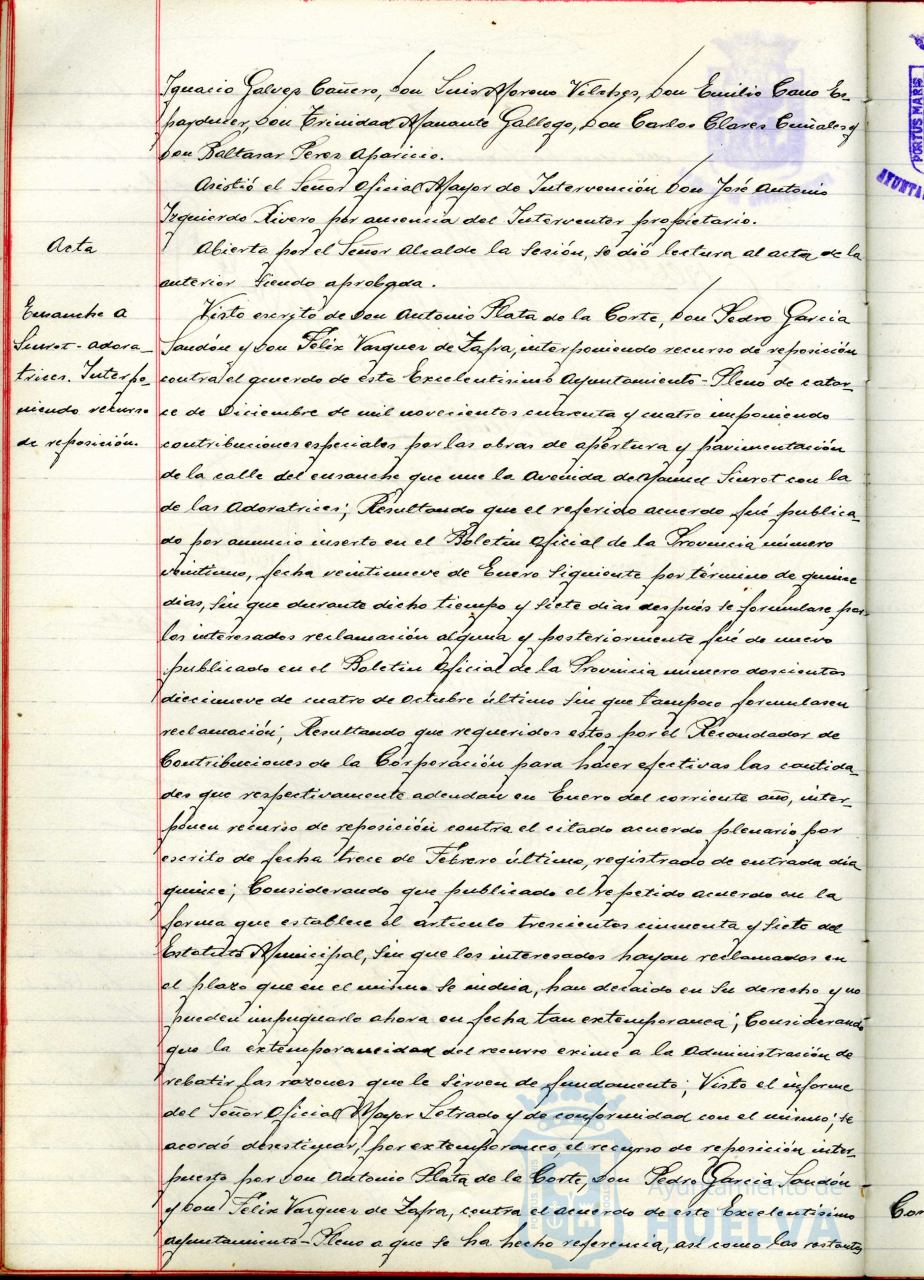 Ignacio Galvez Cañero, Don Luis Moreno Vilches, Don Emilio Cano Es-
parducer, Don Trinidad Amante Gallego, Don Carlos Clares Cuñales y
Don Baltasar Perez Aparicio.
Asistió el Señor Oficial Mayor de Intervención Don José Antonio
Izquierdo Rivero por ausencia del Interventor propietario.
Acta
Abierta por el Señor Alcalde la Sesión, se dió lectura al acta de la
anterior siendo aprobada.
Ensanche a
Siurot-adora-
trices. Interpo-
niendo recurso
de reposición.
Visto escrito de Don Antonio Plata de la Corte, Don Pedro Garcia
Sandón y Don Félix Vazquez de Zafra, interponiendo recurso de reposición
contra el acuerdo de este Excelentisimo Ayuntamiento-Pleno de cator-
ce de Diciembre de mil novecientos cuarenta y cuatro imponiendo
contribuciones especiales por las obras de apertura y pavimentación
de la calle del ensanche que une la Avenida de Manuel Siurot con la
de las Adoratrices; Resultando que el referido acuerdo fué publica-
do por anuncio inserto en el Boletin Oficial de la Provincia número
veintiuno, fecha veintinueve de Enero siguiente por término de quince
dias, sin que durante dicho tiempo y siete dias después se formulase por
los interesados reclamación alguna y posteriormente fué de nuevo
publicado en el Boletin Oficial de la Provincia número doscientos
diecinueve de cuatro de Octubre último sin que tampoco formulasen
reclamación; Resultando que requeridos estos por el Recaudador de
Contribuciones de la Corporación para hacer efectivas las cantida-
des que respectivamente adeudan en Enero del corriente año, inter-
ponen recurso de reposición contra el citado acuerdo plenario por
escrito de fecha trece de Febrero último, registrado de entrada dia
quince; Considerando que publicado el repetido acuerdo en la
forma que establece el articulo trescientos cincuenta y siete del
Estatuto Municipal, sin que los interesados hayan reclamados en
el plazo que en el mismo se indica, han decaido en su derecho y no
pueden impugnarlo ahora en fecha tan extemporanea; Considerando
que la extemporaneidad del recurso exime a la Administración de
rebatir las razones que le sirven de fundamento; Visto el informe
del Señor Oficial Mayor Letrado y de conformidad con el mismo; se
acordó desestimar, por extemporaneo, el recurso de reposición inter-
puesto por Don Antonio Plata de la Corte, Don Pedro Garcia Sandón
y Don Felix Vazquez de Zafra, contra el acuerdo de este Excelentisimo
Ayuntamiento-Pleno a que se ha hecho referencia, asi como las restantes
Ayuntamiento de
HUELVA
PORTUS MARIS
AYUNTA
Con